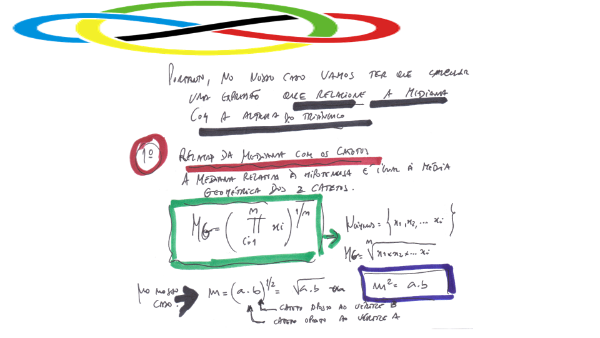 PORTANTO, NO NOSSO CASO VAMOS TER QUE CALCULAR
UMA EXPRESSÃO QUE RELACIONE A MEDIANA
COM A ALTURA DO TRIÂNGULO
1º RELAÇÃO DA MEDIANA COM OS CATETOS
A MEDIANA RELATIVA À HIPOTENUSA É IGUAL À MÉDIA
GEOMÉTRICA DOS 2 CATETOS.
MG = ( ∏ xi )^1/n
NÚMEROS = { x1, x2, ... xi }
MG = ⁿ√x1 × x2 × ... xi
NO NOSSO CASO: m = (a.b)^1/2 = √a.b m² = a.b
CATETO OPOSTO AO VÉRTICE B
CATETO OPOSTO AO VÉRTICE A